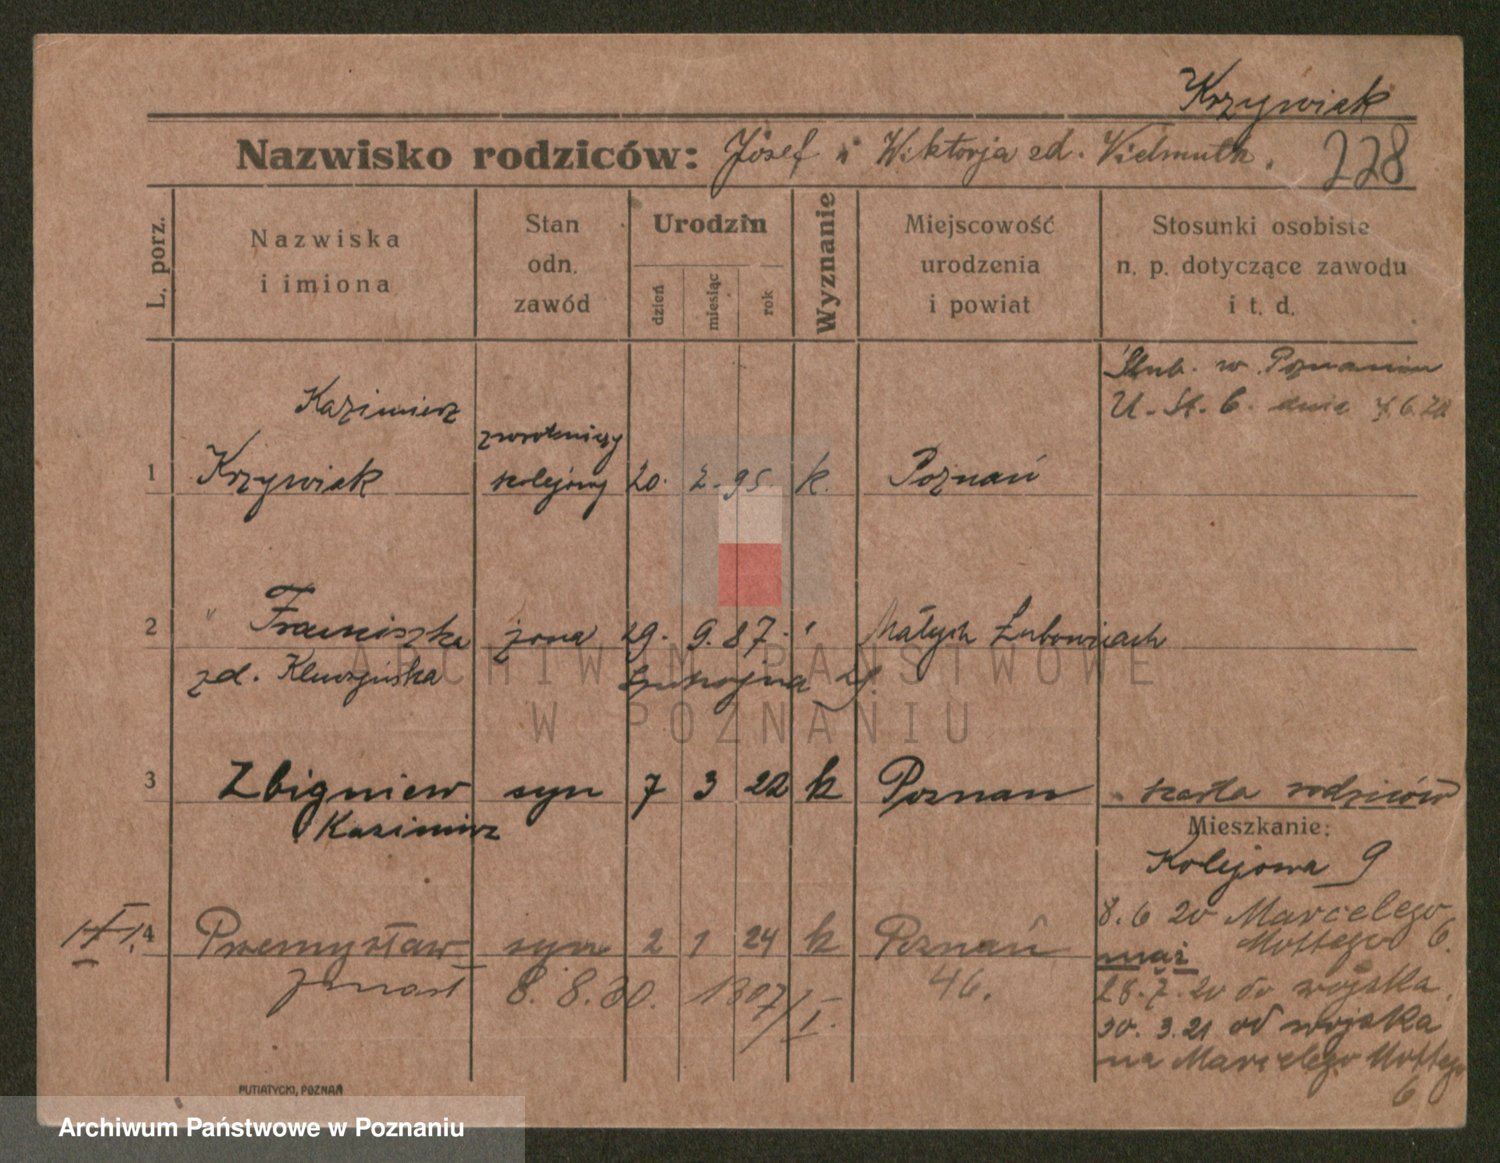 Krzywiak
Nazwisko rodziców: Józef i Wiktorja zd. Vielmuth.
228
L. porz.
Nazwiska
i imiona
Stan
odn.
zawód
Urodzin
dzień
miesiąc
rok
Wyznanie
Miejscowość
urodzenia
i powiat
Stosunki osobiste
n. p. dotyczące zawodu
i t. d.
Ślub. w Poznaniu
U. St. C. dnia 7.6.20
1
Kazimierz
Krzywiak
zwrotniczy
kolejowy
20. 2. 95. k.
Poznań
2
" Franciszka
zd.
żona
29. 9. 87. "
Małych Łubowicach
3
Zbigniew
Kazimierz
syn
7 3 22 k
Poznan
karta rodziców
Mieszkanie:
Kolejowa 9
8.6 20 Marcelego
Mottego 6.
mąż
28.7.20 do wojska.
30.3.21 od wojska
na Marcelego Mottego
6
4
Przemysław
syn
2 1 24 k
Poznań
zmarł 8. 8. 30. 1307/I.
46.
PUTIATYCKI, POZNAŃ
ARCHIWUM PAŃSTWOWE
W POZNANIU
Archiwum Państwowe w Poznaniu